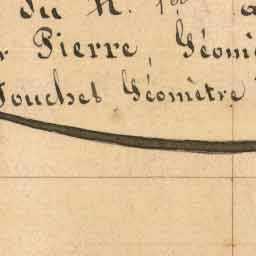 du N.
Pierre, Géom
Touchet Géomètre